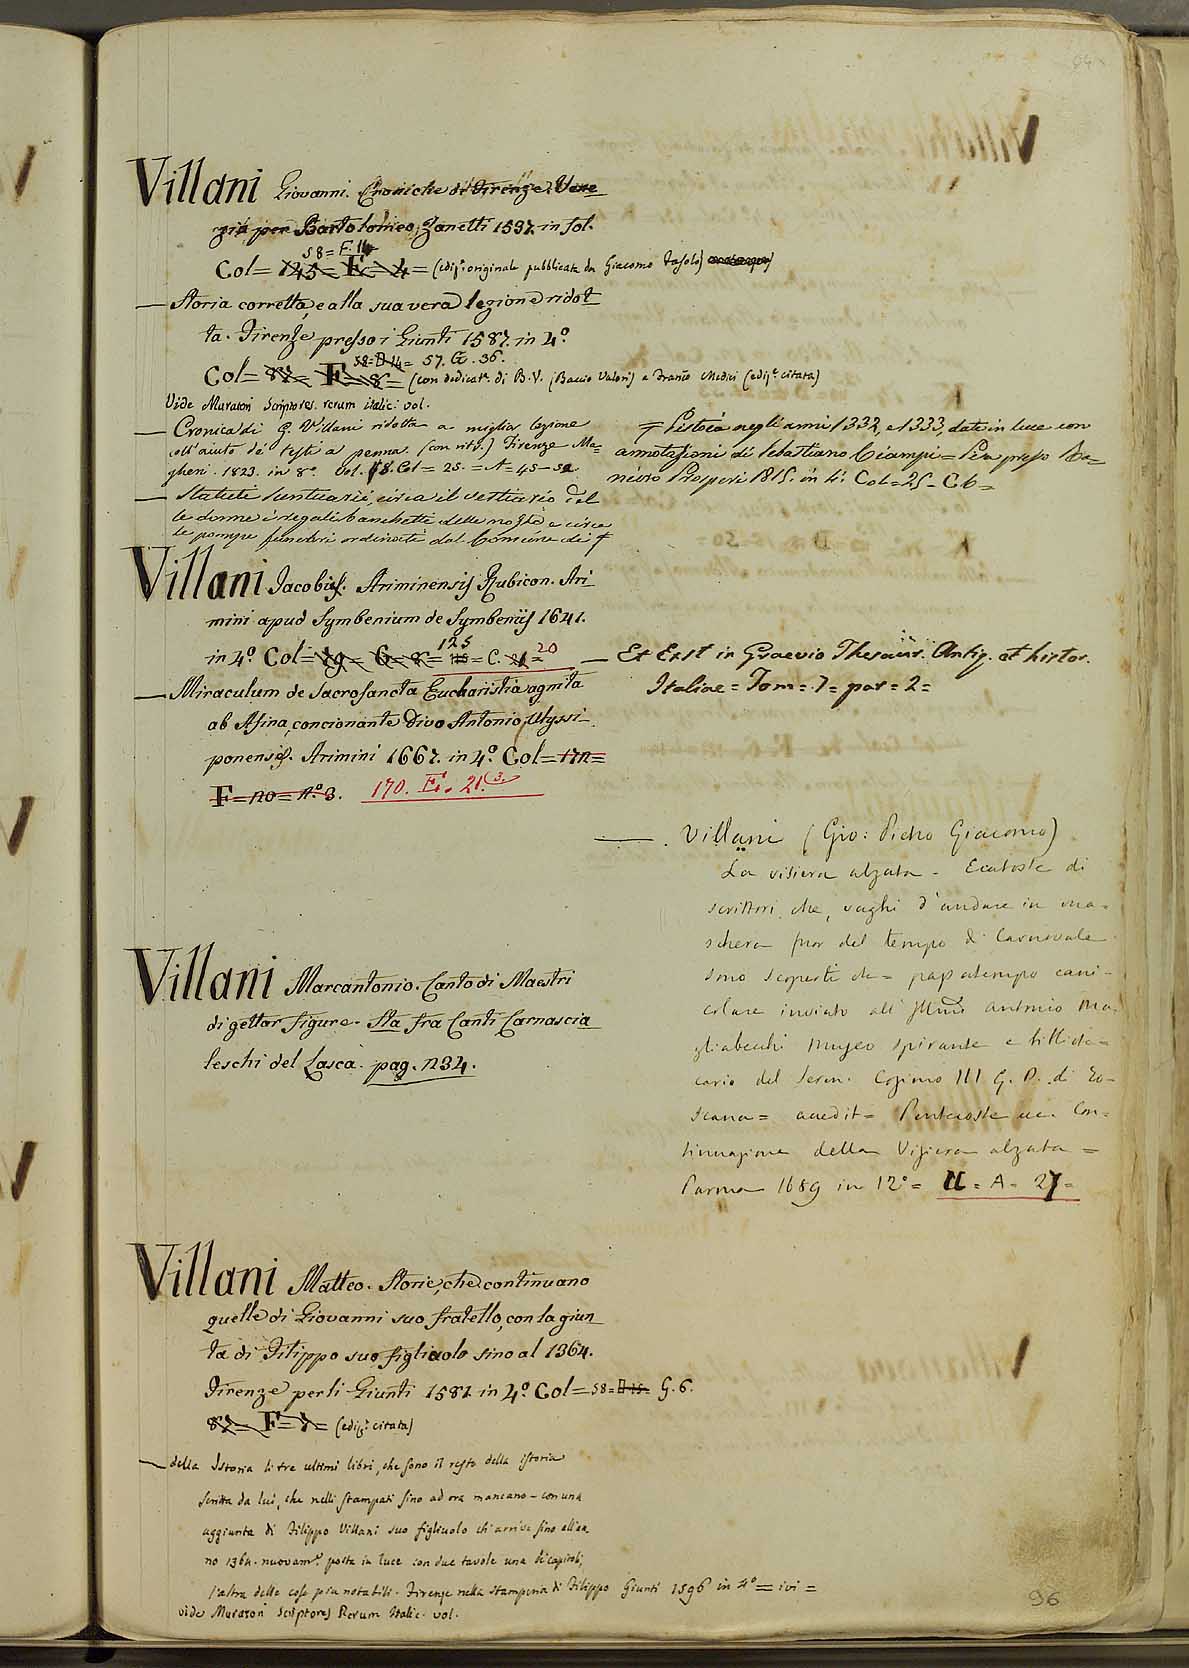 Villani Giovanni. Croniche di Firenze. Vene
zia per Bartolomeo Zanetti 1537 in fol.
58 = F. 14
Col = 145 = F = 4 = (ediz. originale pubblicata da Giacomo Fasolo)
— Storia corretta, e alla sua vera lezione ridot
ta. Firenze presso i Giunti 1587. in 4º
58 = D 14 = 57. G. 36.
Col = 87 = F = 8 = (con dedicat.ª di B. V. (Baccio Valori) a Franco Medici (ediz.e citata)
Vide Muratori Scriptores rerum italic: vol.
— Cronica di G. Villani ridotta a miglior lezione
coll'aiuto de' testi a penna. (con ritr.) Firenze Ma=
gheri. 1823. in 8º. Vol. 8. Col = 25. = A = 45 - 52
— Statuti Suntuarii, circa il vestiario del
le donne i regali banchetti delle nozze e circa
le pompe funebri ordinati dal Comune di ⌿
⌿ Pistoia negli anni 1332, e 1333, dati in luce con
annotazioni di Sebastiano Ciampi = Pisa presso Ra=
nieri Prosperi 1815. in 4: Col = 25 = C 6 =
Villani Jacobus. Ariminensis Rubicon. Ari
mini apud Symbenium de Symbeniis 1641.
125
in 4º Col = 19 = G = 8 = = C. 21 = 20
— Et Exst in Graevio Thesaur. Antiq. et histor.
Italiae = Tom = 7 = par = 2 =
— Miraculum de Sacrosancta Eucharistia agnita
ab Asina, concionante Divo Antonio Ulyssi
ponensis. Arimini 1667. in 4º Col = 172 =
F = 20 = n.º 3. 170. E. 21.(3.
— . Villani (Gio: Pietro Giacomo)
La visiera alzata - Ecatoste di
scrittori, che, vaghi d'andare in ma=
schera fuor del tempo di Carnovale
sono scoperti da = passatempo cani-
colare inviato all' Illmo Antonio Ma
gliabechi Museo spirante e bibliote=
cario del Seren. Cosimo III G. D. di To-
scana = accedit = Pentecoste ec. Con=
tinuazione della Visiera alzata =
Parma 1689 in 12º = II = A = 27 =
Villani Marcantonio. Canto di Maestri
di gettar figure. Sta fra Canti Carnascia
leschi del Lasca. pag. 234.
Villani Matteo. Storie, che continuano
quelle di Giovanni suo fratello, con la giun
ta di Filippo suo figliuolo sino al 1364.
Firenze per li Giunti 1581 in 4º Col = 58 = D 15 = G. 6.
87 = F = 7 = (ediz.e citata)
— della Istoria li tre ultimi libri, che sono il resto della istoria
scritta da lui, che nelli stampati fino ad ora mancano - con una
aggiunta di Filippo Villani suo figliuolo ch'arriva sino all'an
no 1364. nuovam.e posta in luce con due tavole una de capitoli,
l'altra delle cose più notabili. Firenze nella stamperia di Filippo Giunti 1596 in 4º = ivi =
vide Muratori Scriptores Rerum Italic. vol.
96